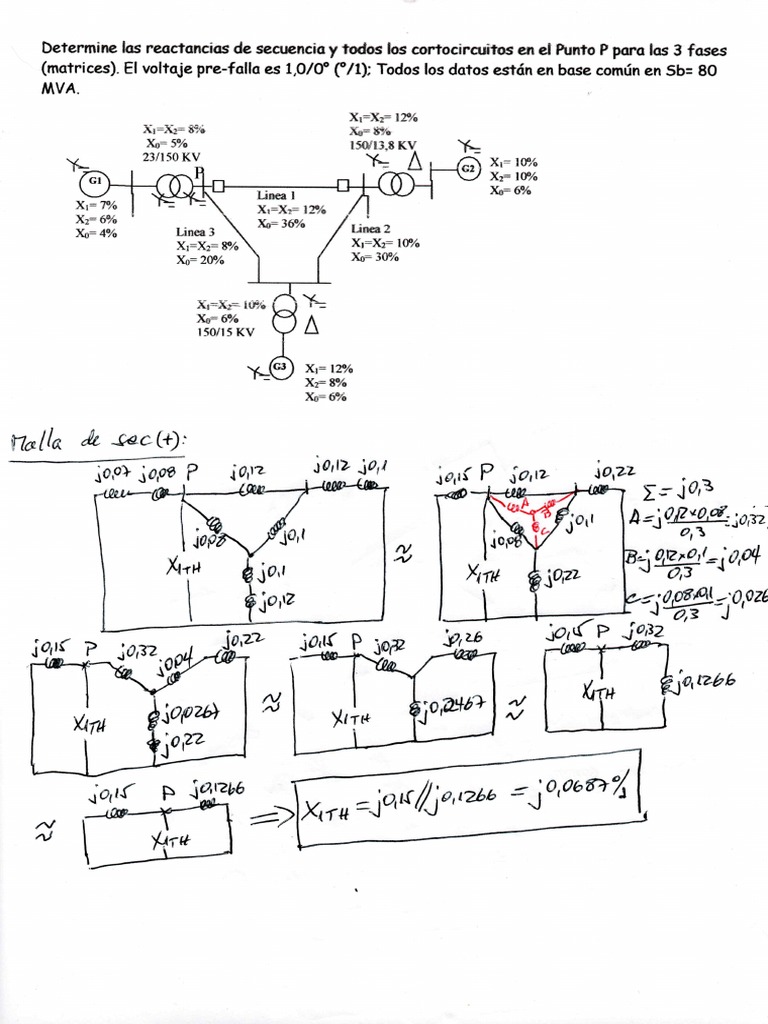 Determine las reactancias de secuencia y todos los cortocircuitos en el Punto P para las 3 fases
(matrices). El voltaje pre-falla es 1,0/0° (°/1); Todos los datos están en base común en Sb= 80
MVA.
X₁=X₂= 8%
X₀= 5%
23/150 KV
X₁=X₂= 12%
X₀= 8%
150/13,8 KV
P
G1
X₁= 7%
X₂= 6%
X₀= 4%
G2
X₁= 10%
X₂= 10%
X₀= 6%
Linea 1
X₁=X₂= 12%
X₀= 36%
Linea 3
X₁=X₂= 8%
X₀= 20%
Linea 2
X₁=X₂= 10%
X₀= 30%
X₁=X₂= 10%
X₀= 6%
150/15 KV
G3
X₁= 12%
X₂= 8%
X₀= 6%
Malla de sec(+):
j0,07 j0,08 P j0,12 j0,12 j0,1
j0,08 j0,1
X₁TH
j0,1
j0,12
≈
j0,15 P j0,12 j0,22
A B C
j0,08 j0,1
X₁TH
j0,22
Σ = j0,3
A = j 0,12x0,08/0,3 = j0,32
B = j 0,12x0,1/0,3 = j0,04
C = j 0,08x0,1/0,3 = j0,026
j0,15 P j0,32 j0,04 j0,22
X₁TH
j0,0267
j0,22
≈
j0,15 P j0,32 j0,26
X₁TH
j0,2467
≈
j0,15 P j0,32
X₁TH
j0,1266
≈
j0,15 P j0,1266
X₁TH
⇒ X₁TH = j0,15//j0,1266 = j0,0687 %